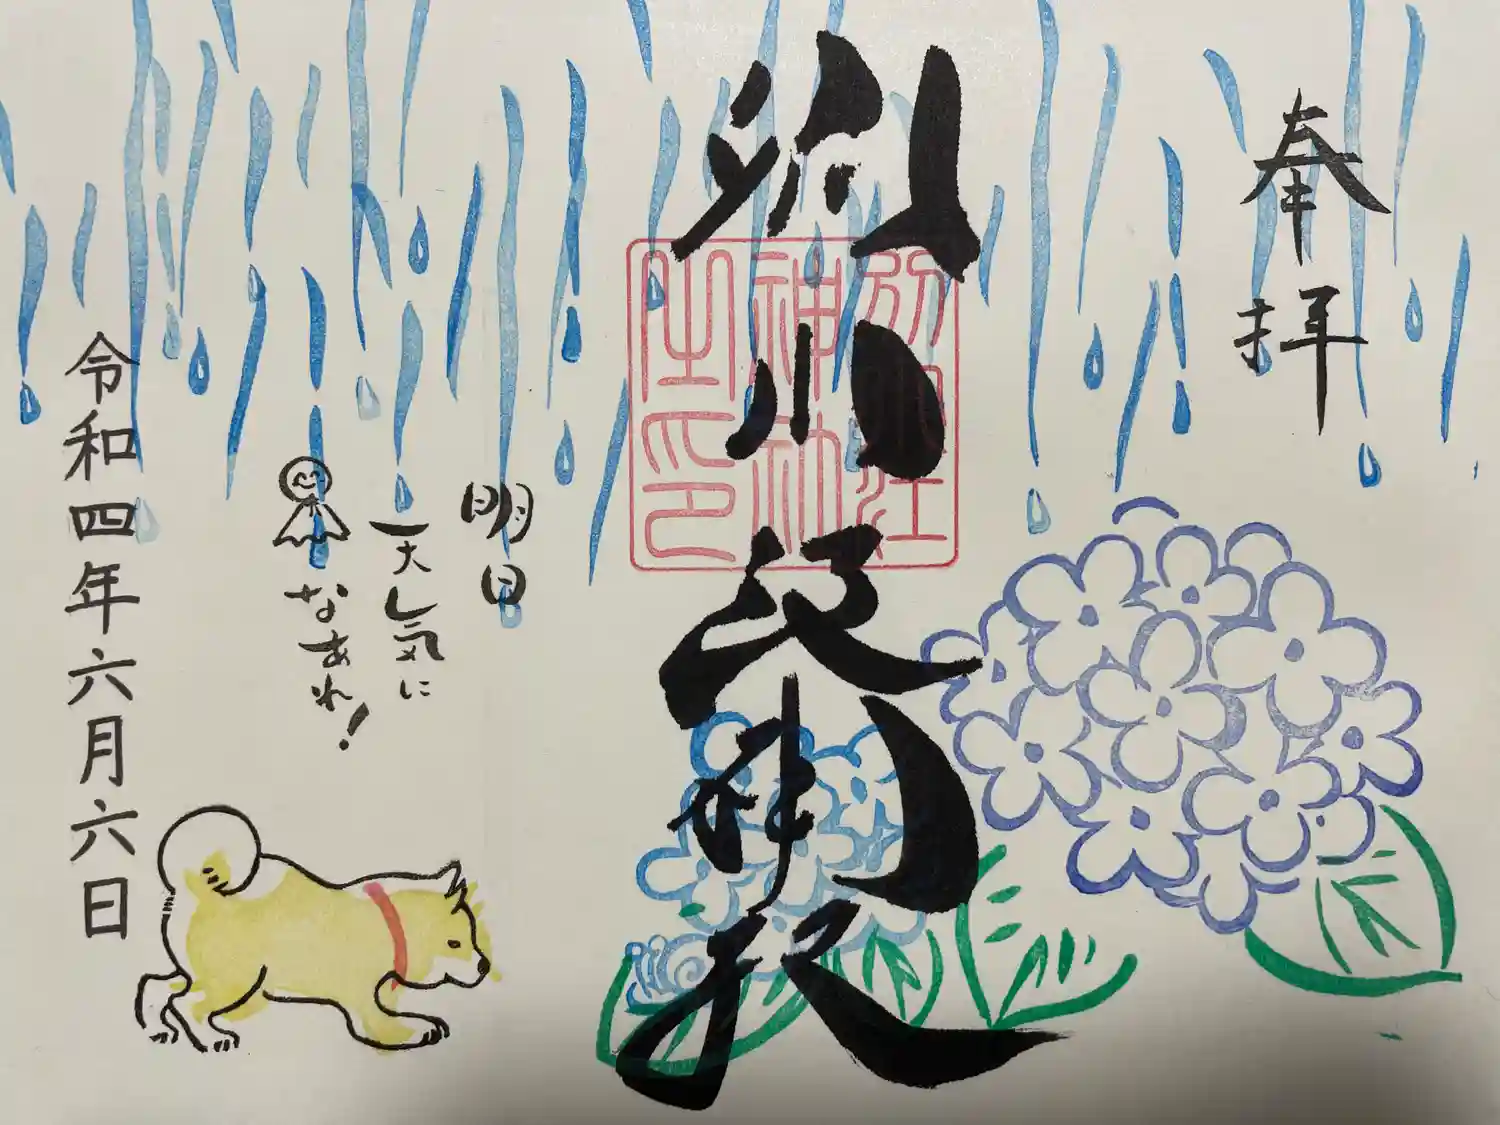 奉拝
別小江神社
別小江
神社
之印
明日
天気に
なあれ!
令和四年六月六日